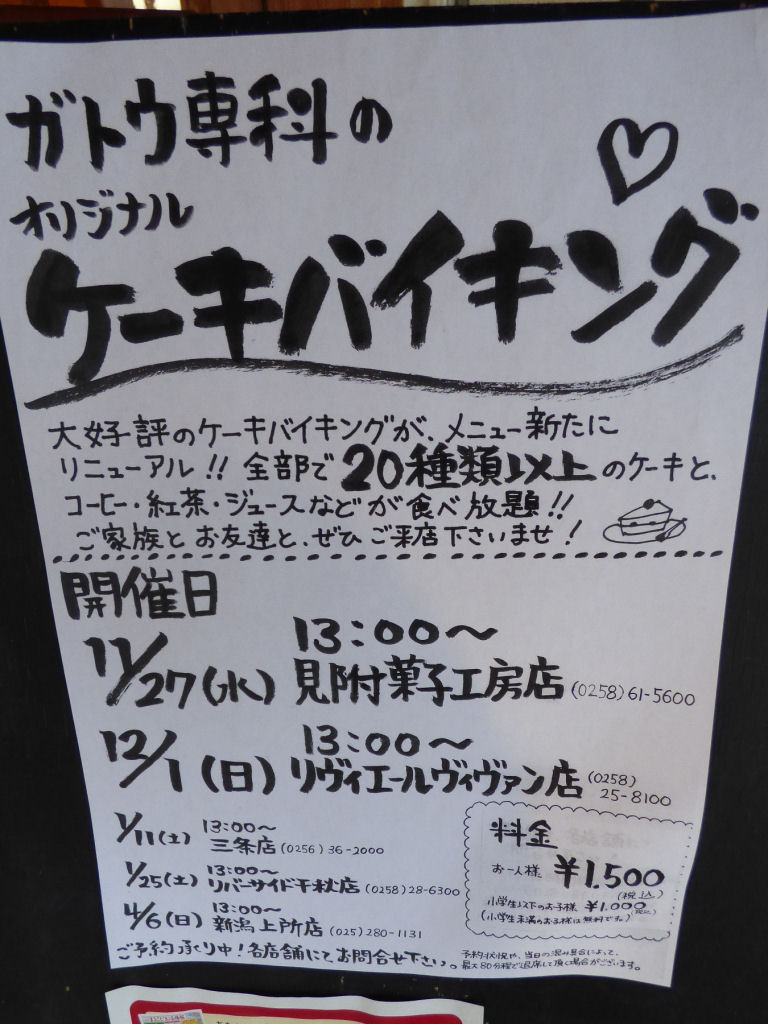 ガトウ専科の
オリジナル
ケーキバイキング
大好評のケーキバイキングが、メニュー新たに
リニューアル!! 全部で20種類以上のケーキと、
コーヒー・紅茶・ジュースなどが食べ放題!!
ご家族とお友達と、ぜひご来店下さいませ!
開催日
11/27(水) 13:00〜
見附菓子工房店 (0258)61-5600
12/1(日) 13:00〜
リヴィエールヴィヴァン店 (0258)25-8100
1/11(土) 13:00〜
三条店 (0256)36-2000
1/25(土) 13:00〜
リバーサイド千秋店 (0258)28-6300
4/6(日) 13:00〜
新潟上所店 (025)280-1131
ご予約承り中!各店舗にてお問合せ下さい。
料金
お一人様 ¥1.500
(税込)
小学生以下のお子様 ¥1.000(税込)
(小学生未満のお子様は無料です。)
予約状況や、当日の混み具合によって、
最大80分程で退席して頂く場合がございます。